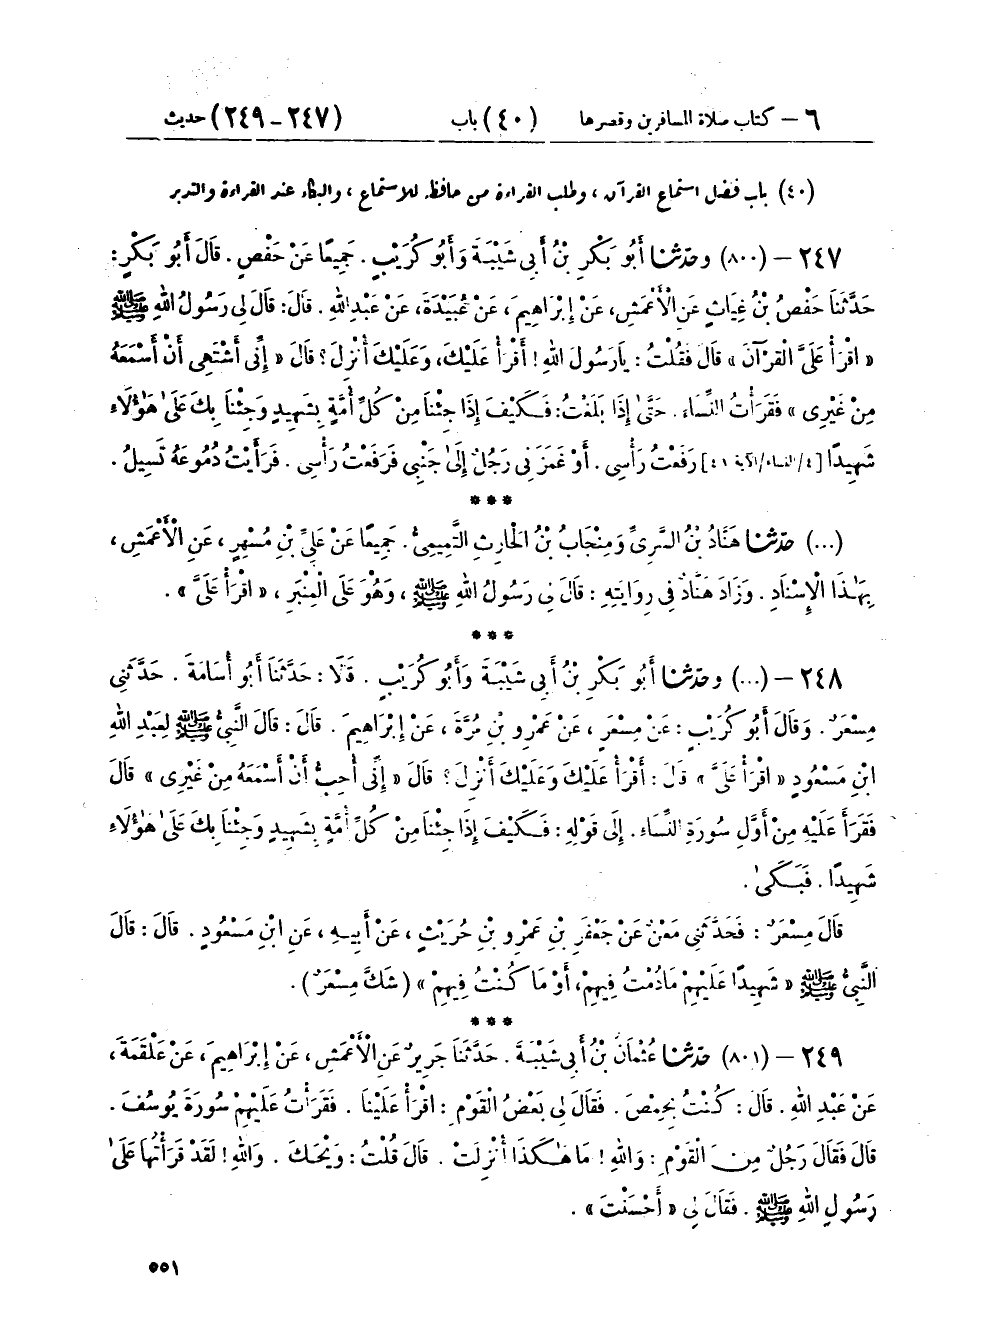 ٦ – كتاب صلاة المسافرين وقصرها (٤٠) باب (٢٤٧ – ٢٤٩) حديث
(٤٠) باب فضل استماع القرآن ، وطلب القراءة من حافظه للاستماع ، والبكاء عند القراءة والتدبر
٢٤٧ – (٨٠٠) وحَدَّثَنَا أَبُو بَكْرِ بْنُ أَبِي شَيْبَةَ وَأَبُو كُرَيْبٍ . جَمِيعًا عَنْ حَفْصٍ . قَالَ أَبُو بَكْرٍ :
حَدَّثَنَا حَفْصُ بْنُ غِيَاثٍ عَنِ الْأَعْمَشِ، عَنْ إِبْرَاهِيمَ، عَنْ عُبَيْدَةَ، عَنْ عَبْدِ اللهِ . قَالَ: قَالَ لِي رَسُولُ اللهِ ﷺ
« اقْرَأْ عَلَىَّ الْقُرْآنَ » قَالَ فَقُلْتُ : يَا رَسُولَ اللهِ ! أَقْرَأُ عَلَيْكَ، وَعَلَيْكَ أُنْزِلَ؟ قَالَ « إِنِّي أَشْتَهِي أَنْ أَسْمَعَهُ
مِنْ غَيْرِي » فَقَرَأْتُ النِّسَاءَ . حَتَّىٰ إِذَا بَلَغْتُ: فَكَيْفَ إِذَا جِئْنَا مِنْ كُلِّ أُمَّةٍ بِشَهِيدٍ وَجِئْنَا بِكَ عَلَىٰ هَـٰؤُلَاءِ
شَهِيدًا [٤/النساء/الآية ٤١] رَفَعْتُ رَأْسِي . أَوْ غَمَزَنِي رَجُلٌ إِلَىٰ جَنْبِي فَرَفَعْتُ رَأْسِي . فَرَأَيْتُ دُمُوعَهُ تَسِيلُ .
***
(...) حَدَّثَنَا هَنَّادُ بْنُ السَّرِيِّ وَمِنْجَابُ بْنُ الْحَارِثِ التَّمِيمِيُّ . جَمِيعًا عَنْ عَلِيِّ بْنِ مُسْهِرٍ ، عَنِ الْأَعْمَشِ ،
بِهَـٰذَا الْإِسْنَادِ . وَزَادَ هَنَّادٌ فِي رِوَايَتِهِ : قَالَ لِي رَسُولُ اللهِ ﷺ ، وَهُوَ عَلَى الْمِنْبَرِ ، « اقْرَأْ عَلَىَّ » .
***
٢٤٨ – (...) وحَدَّثَنَا أَبُو بَكْرِ بْنُ أَبِي شَيْبَةَ وَأَبُو كُرَيْبٍ . قَالَا : حَدَّثَنَا أَبُو أُسَامَةَ . حَدَّثَنِي
مِسْعَرٌ . وَقَالَ أَبُو كُرَيْبٍ : عَنْ مِسْعَرٍ ، عَنْ عَمْرِو بْنِ مُرَّةَ ، عَنْ إِبْرَاهِيمَ . قَالَ : قَالَ النَّبِيُّ ﷺ لِعَبْدِ اللهِ
ابْنِ مَسْعُودٍ « اقْرَأْ عَلَىَّ » قَالَ : أَقْرَأُ عَلَيْكَ وَعَلَيْكَ أُنْزِلَ؟ قَالَ « إِنِّي أُحِبُّ أَنْ أَسْمَعَهُ مِنْ غَيْرِي » قَالَ
فَقَرَأَ عَلَيْهِ مِنْ أَوَّلِ سُورَةِ النِّسَاءِ . إِلَى قَوْلِهِ : فَكَيْفَ إِذَا جِئْنَا مِنْ كُلِّ أُمَّةٍ بِشَهِيدٍ وَجِئْنَا بِكَ عَلَىٰ هَـٰؤُلَاءِ
شَهِيدًا . فَبَكَىٰ .
قَالَ مِسْعَرٌ : فَحَدَّثَنِي مَعْنٌ عَنْ جَعْفَرِ بْنِ عَمْرِو بْنِ حُرَيْثٍ ، عَنْ أَبِيهِ ، عَنِ ابْنِ مَسْعُودٍ . قَالَ : قَالَ
النَّبِيُّ ﷺ « شَهِيدًا عَلَيْهِمْ مَا دُمْتُ فِيهِمْ، أَوْ مَا كُنْتُ فِيهِمْ » (شَكَّ مِسْعَرٌ) .
***
٢٤٩ – (٨٠١) حَدَّثَنَا عُثْمَانُ بْنُ أَبِي شَيْبَةَ . حَدَّثَنَا جَرِيرٌ عَنِ الْأَعْمَشِ ، عَنْ إِبْرَاهِيمَ ، عَنْ عَلْقَمَةَ ،
عَنْ عَبْدِ اللهِ . قَالَ : كُنْتُ بِحِمْصَ . فَقَالَ لِي بَعْضُ الْقَوْمِ : اقْرَأْ عَلَيْنَا . فَقَرَأْتُ عَلَيْهِمْ سُورَةَ يُوسُفَ .
قَالَ فَقَالَ رَجُلٌ مِنَ الْقَوْمِ : وَاللهِ ! مَا هَـٰكَذَا أُنْزِلَتْ . قَالَ قُلْتُ : وَيْحَكَ . وَاللهِ ! لَقَدْ قَرَأْتُهَا عَلَىٰ
رَسُولِ اللهِ ﷺ . فَقَالَ لِي « أَحْسَنْتَ » .
٥٥١